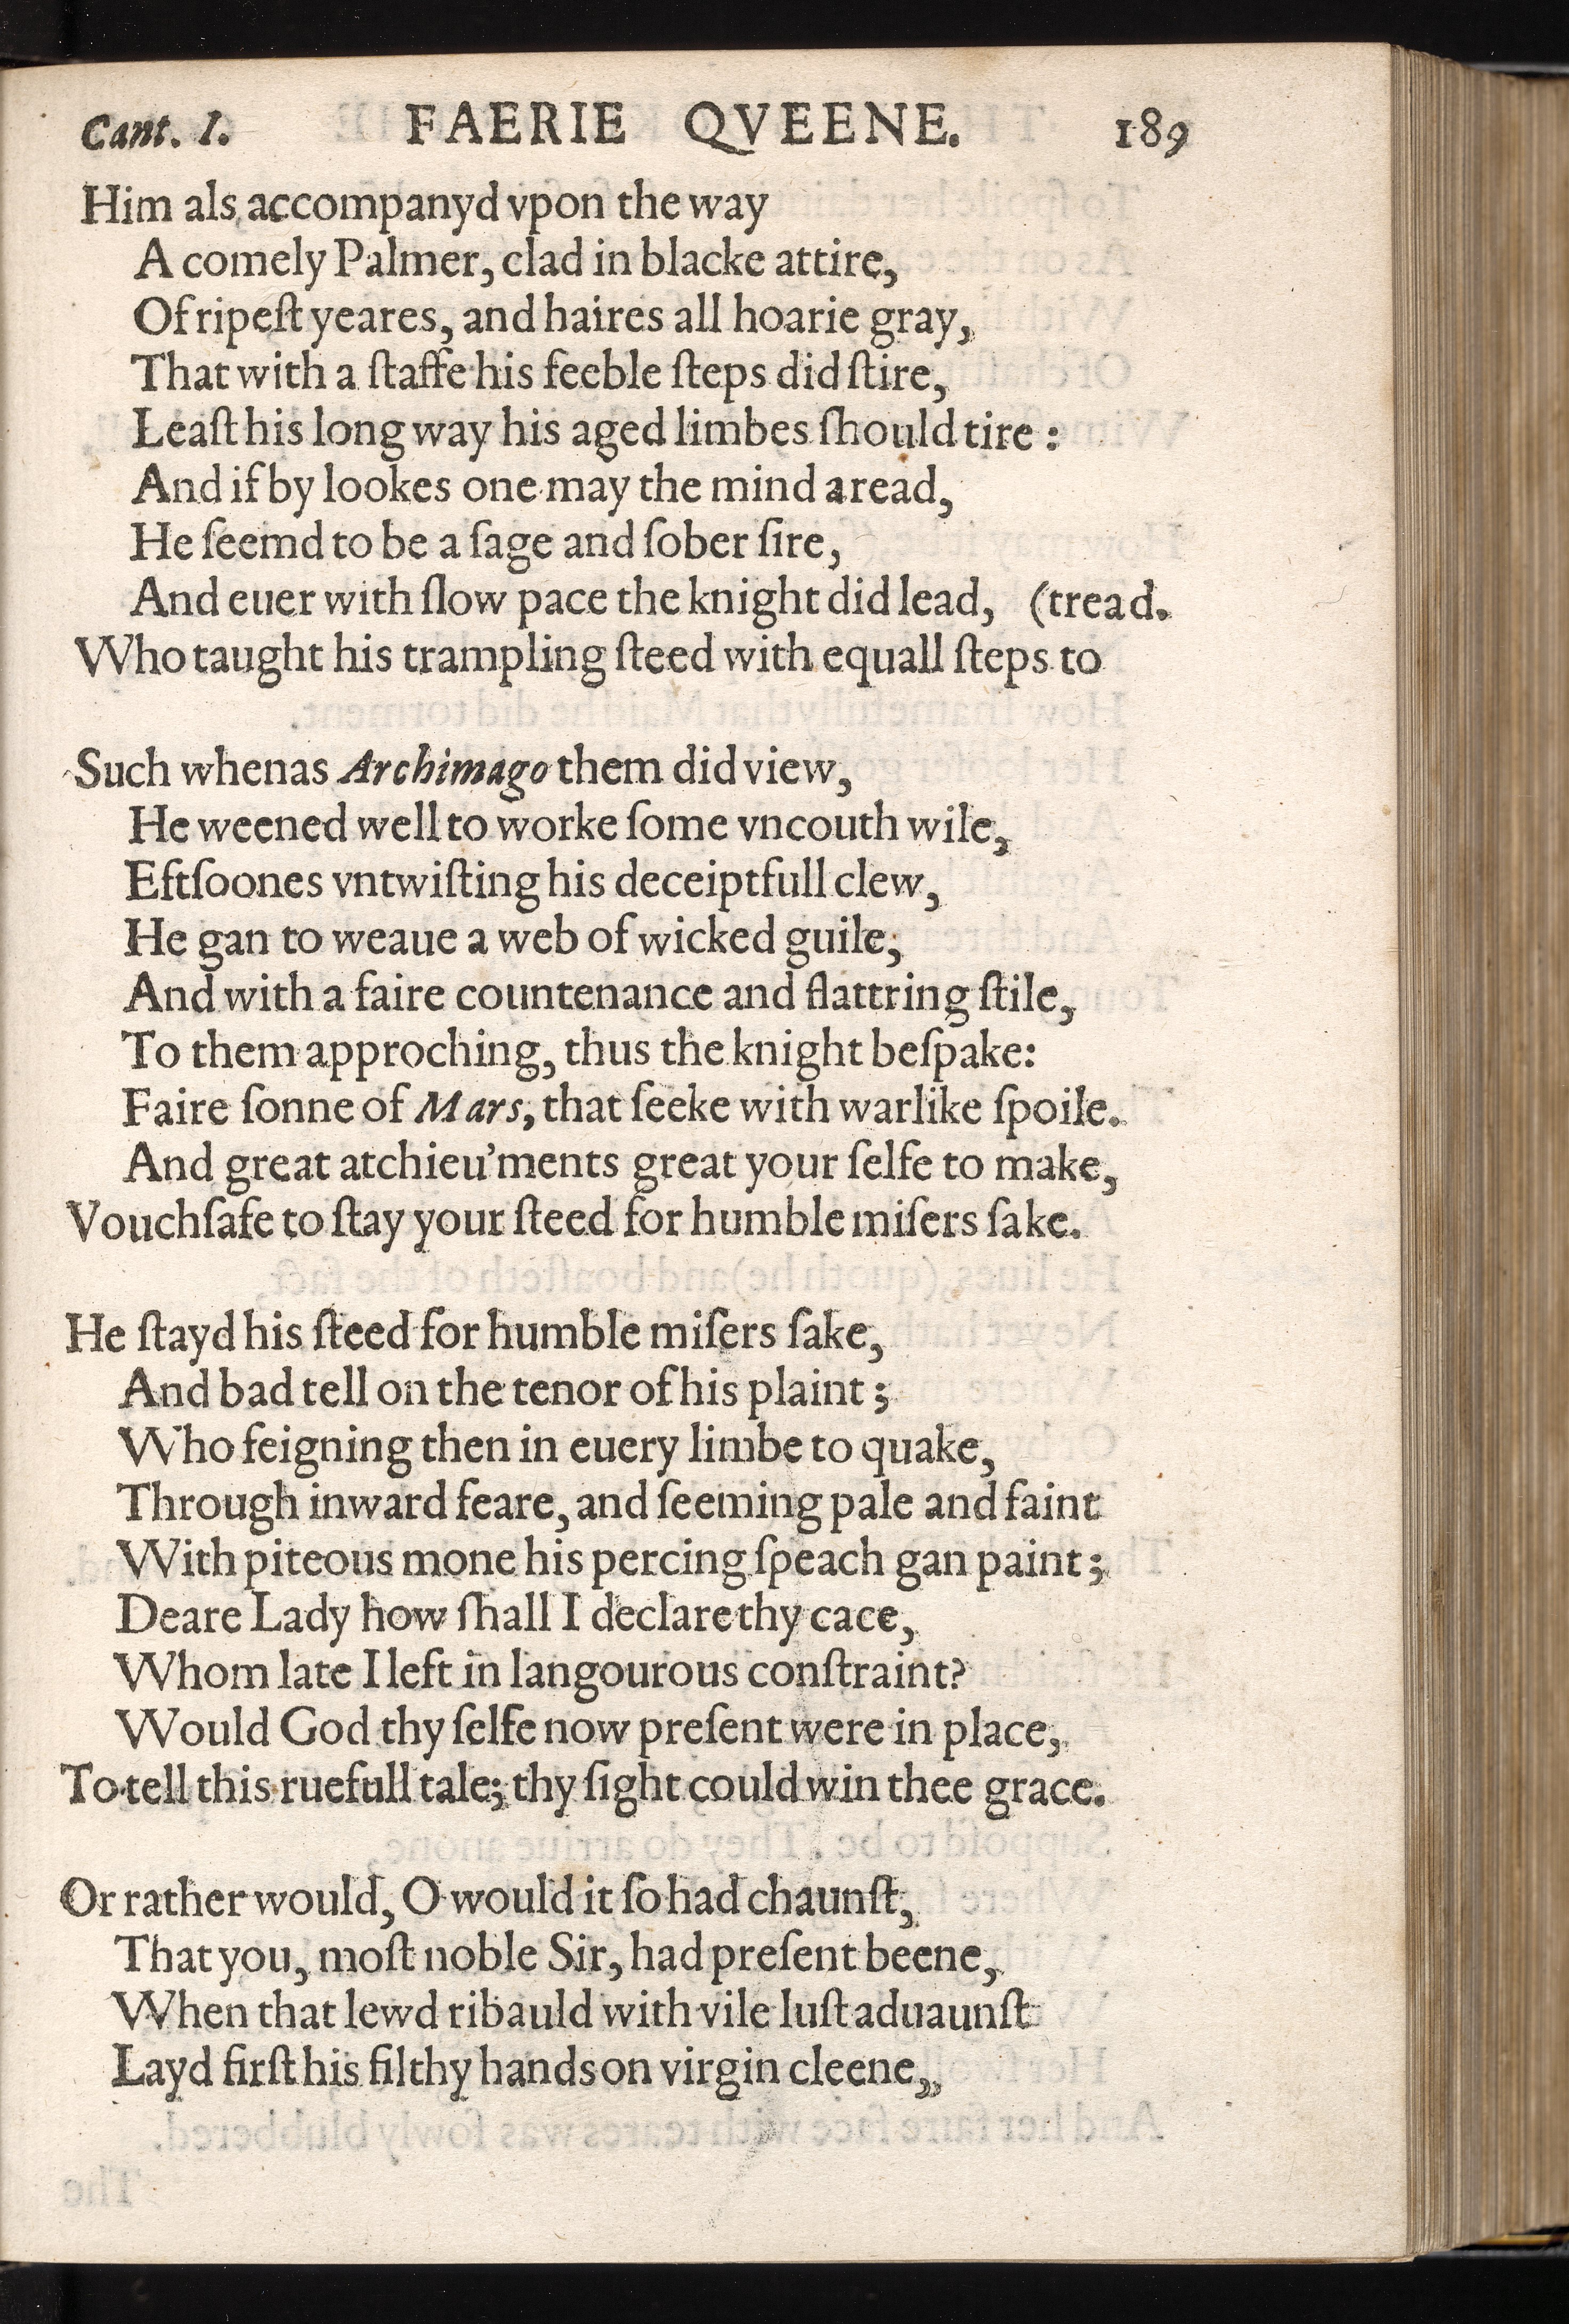 Cant. I. FAERIE QVEENE. 189
Him als accompanyd vpon the way
A comely Palmer, clad in blacke attire,
Of ripeſt yeares, and haires all hoarie gray,
That with a ſtaffe his feeble ſteps did ſtire,
Leaſt his long way his aged limbes ſhould tire:
And if by lookes one may the mind aread,
He ſeemd to be a ſage and ſober ſire,
And euer with ſlow pace the knight did lead, (tread.
Who taught his trampling ſteed with equall ſteps to
Such whenas Archimago them did view,
He weened well to worke ſome vncouth wile,
Eftſoones vntwiſting his deceiptfull clew,
He gan to weaue a web of wicked guile,
And with a faire countenance and flattring ſtile,
To them approching, thus the knight beſpake:
Faire ſonne of Mars, that ſeeke with warlike ſpoile.
And great atchieu'ments great your ſelfe to make,
Vouchſafe to ſtay your ſteed for humble miſers ſake.
He ſtayd his ſteed for humble miſers ſake,
And bad tell on the tenor of his plaint;
Who feigning then in euery limbe to quake,
Through inward feare, and ſeeming pale and faint
With piteous mone his percing ſpeach gan paint;
Deare Lady how ſhall I declare thy cace,
Whom late I left in langourous conſtraint?
Would God thy ſelfe now preſent were in place,
To tell this ruefull tale; thy ſight could win thee grace.
Or rather would, O would it ſo had chaunſt,
That you, moſt noble Sir, had preſent beene,
When that lewd ribauld with vile luſt aduaunſt
Layd firſt his filthy hands on virgin cleene,